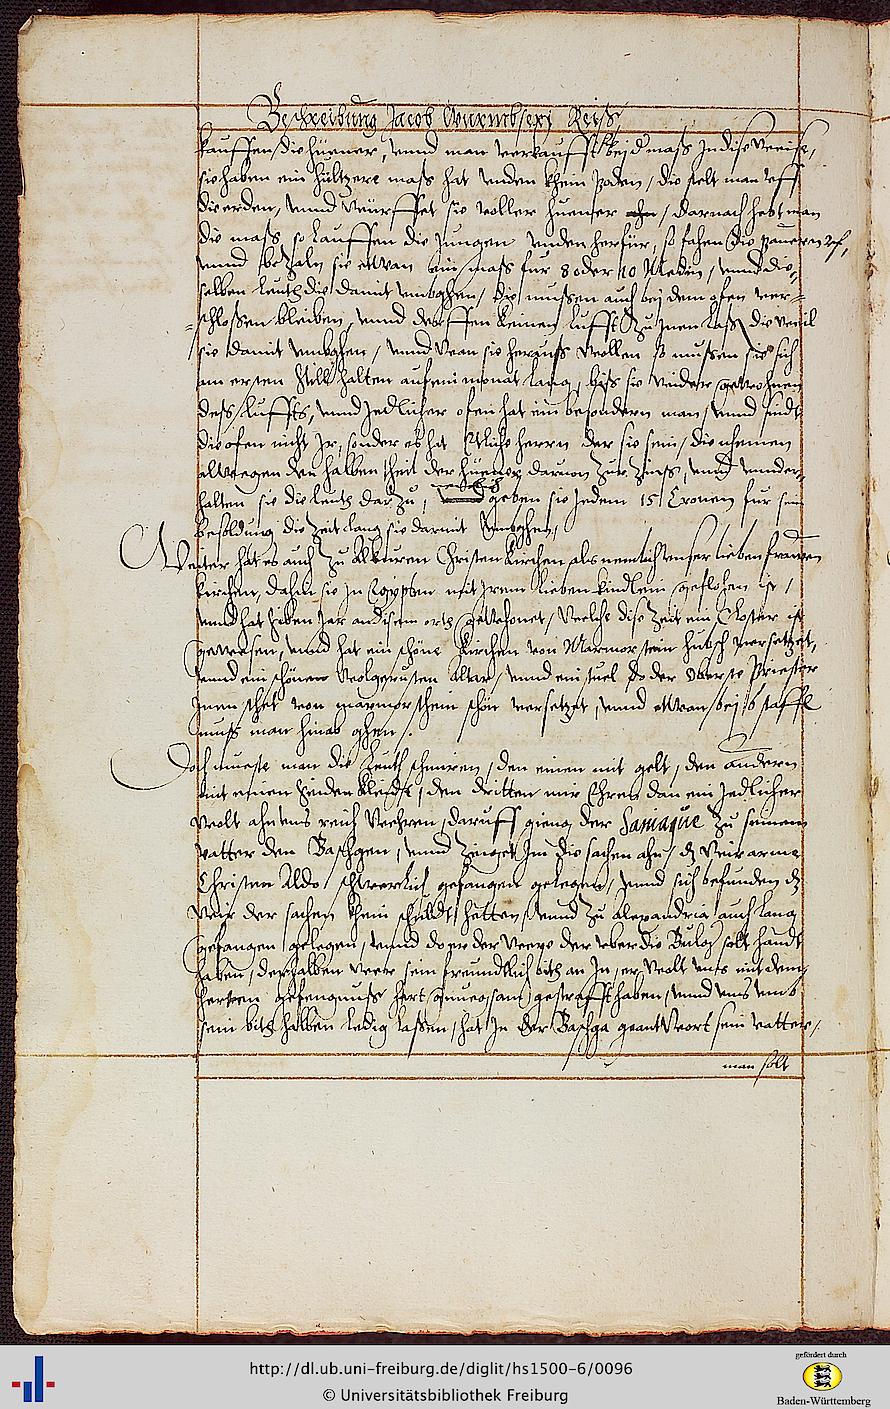 Beschreibung Jacob Wurmbserj Reiß
kauffen die hüener, vnnd man verkaufft bej d maß Jn dise weise,
sie haben ein hültzere maß hat vnden khein boden, die stelt man vff
die erden, vnnd würffet sie voller huener / darnach hebt man
die maß so lauffen die jungen vnden herfür, so fahen die pauern vf,
vnnd bezaln sie etwan ein maß für 8 oder 10 Meden, vnnd die-
selben leuth die damit vmbgehen, die mußen auch bej dem ofen ver-
schloßen bleiben, vnnd derffen keinen lufft zu jnen laß, die weil
sie damit vmbgehen, vnnd wen sie herauß wöllen so mußen sie sich
am ersten still halten auf ein monat lang, biß sie wider gewohnen
deß luffts, vnnd jedlicher ofen hat ein besondern man, vnnd sindt
die ofen nicht Jr, sonder es hat Etliche herrn der sie sein, die nhemen
alwegen den halben theil der hüener daruon zur zinß, vnnd vnder-
halten sie die leuth darzu, geben sie jedem 15 Cronen fur sein
besoldung die zeit lang sie darmit vmbgehen,
Weiter hat es auch zu Alkeuren Christen kirchen als nemlich vnser lieben frauwen
kirchen, dahin sie jn Egypten mit jrem lieben kindlein geflohen ist,
vnnd hat siben jar an disem orth gewohnet, welche dise zeit ein Closter ist
gewesen, vnnd hat ein schöne kirchen von Marmorstein hübsch versetzet,
vnnd ein schönen wolgerusten altar, vnnd ein stuel do der oberste Priester
jnnen sthet von marmorsthein schön versetzet, vnnd etwan bej 6 staffl
muß man hinab gehen.
Doch mueste man die leuth schmiren, den einen mit gelt, den andern
mit einem seiden kleidt, den dritten mir Ehren dan ein jedlicher
wolt ahn vns reich werden, daruff gieng der Samaque zu seinem
vatter den Baschgen, vnnd zeiget jm die sachen ahn, dz wir arme
Christen Aldo schwerlich gefangen gelegen, vnnd sich befunden dz
wir der sachen khein schuldt hetten, vnnd zu alexandria auch lang
gefangen gelegen, vnnd do er der were der vber die Buloj solt handt
haben, derhalben were sein freundtlich bith an Jn, er wolt vns mit dem
herten gefengnuß hert genuegsam gestrafft haben, vnnd vns vmb
sein bith halben ledig laßen, hat jn der Baschga geantwort sein vatter,
man solt
http://dl.ub.uni-freiburg.de/diglit/hs1500-6/0096
© Universitätsbibliothek Freiburg
gefördert durch
Baden-Württemberg